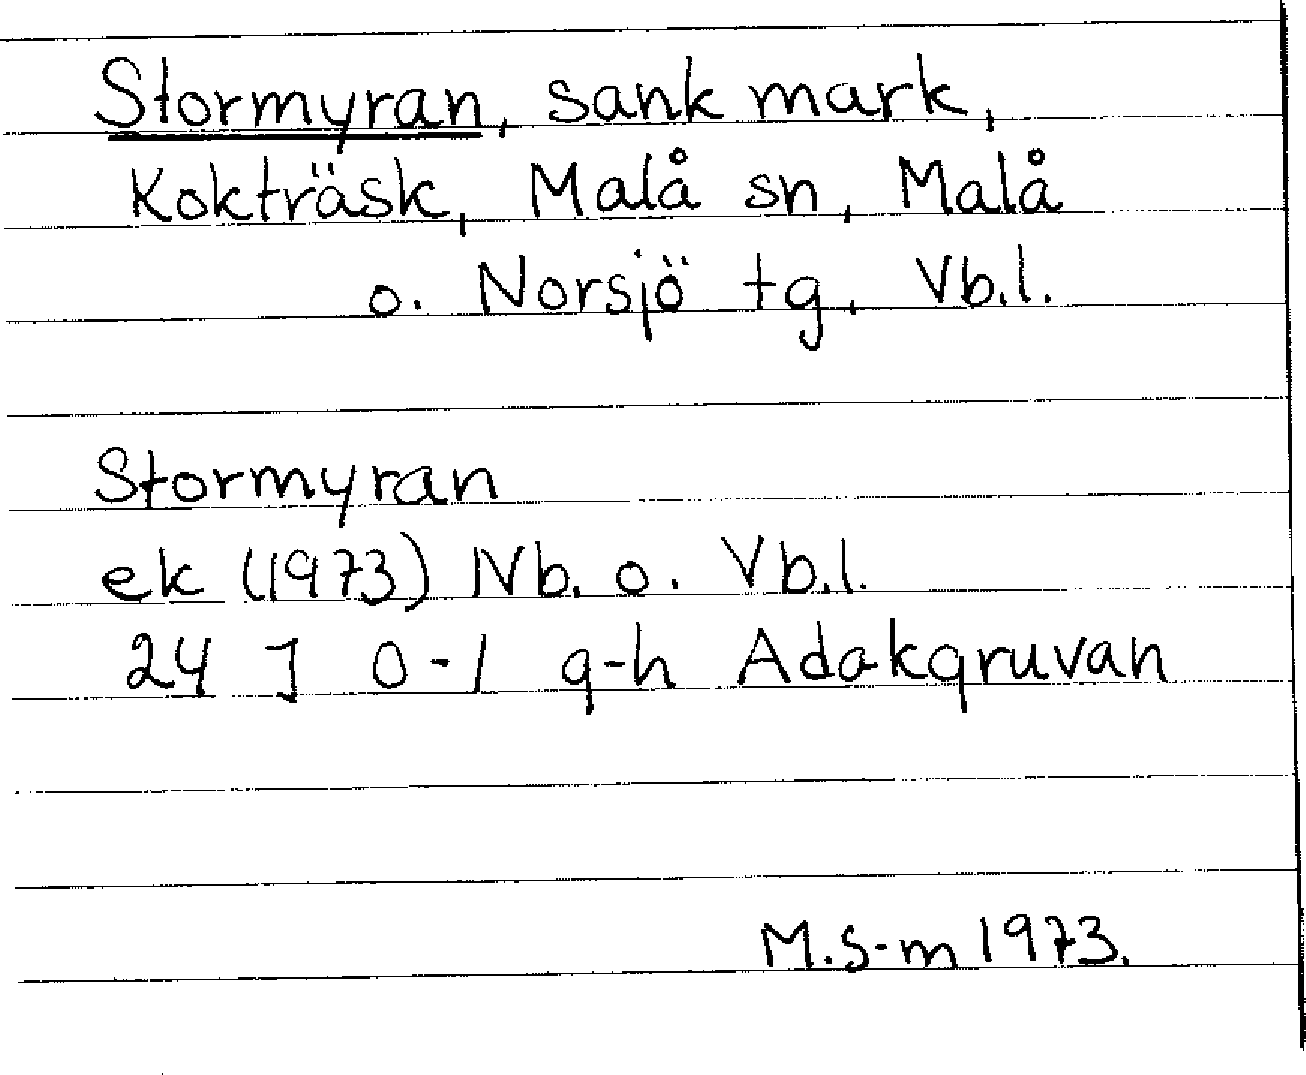 Stormyran, sank mark,
Kokträsk, Malå sn, Malå
o. Norsjö tg, Vb.l.
Stormyran
ek (1973) Nb. o. Vb.l.
24 J 0-1 g-h Adakgruvan
M.S-m 1973.